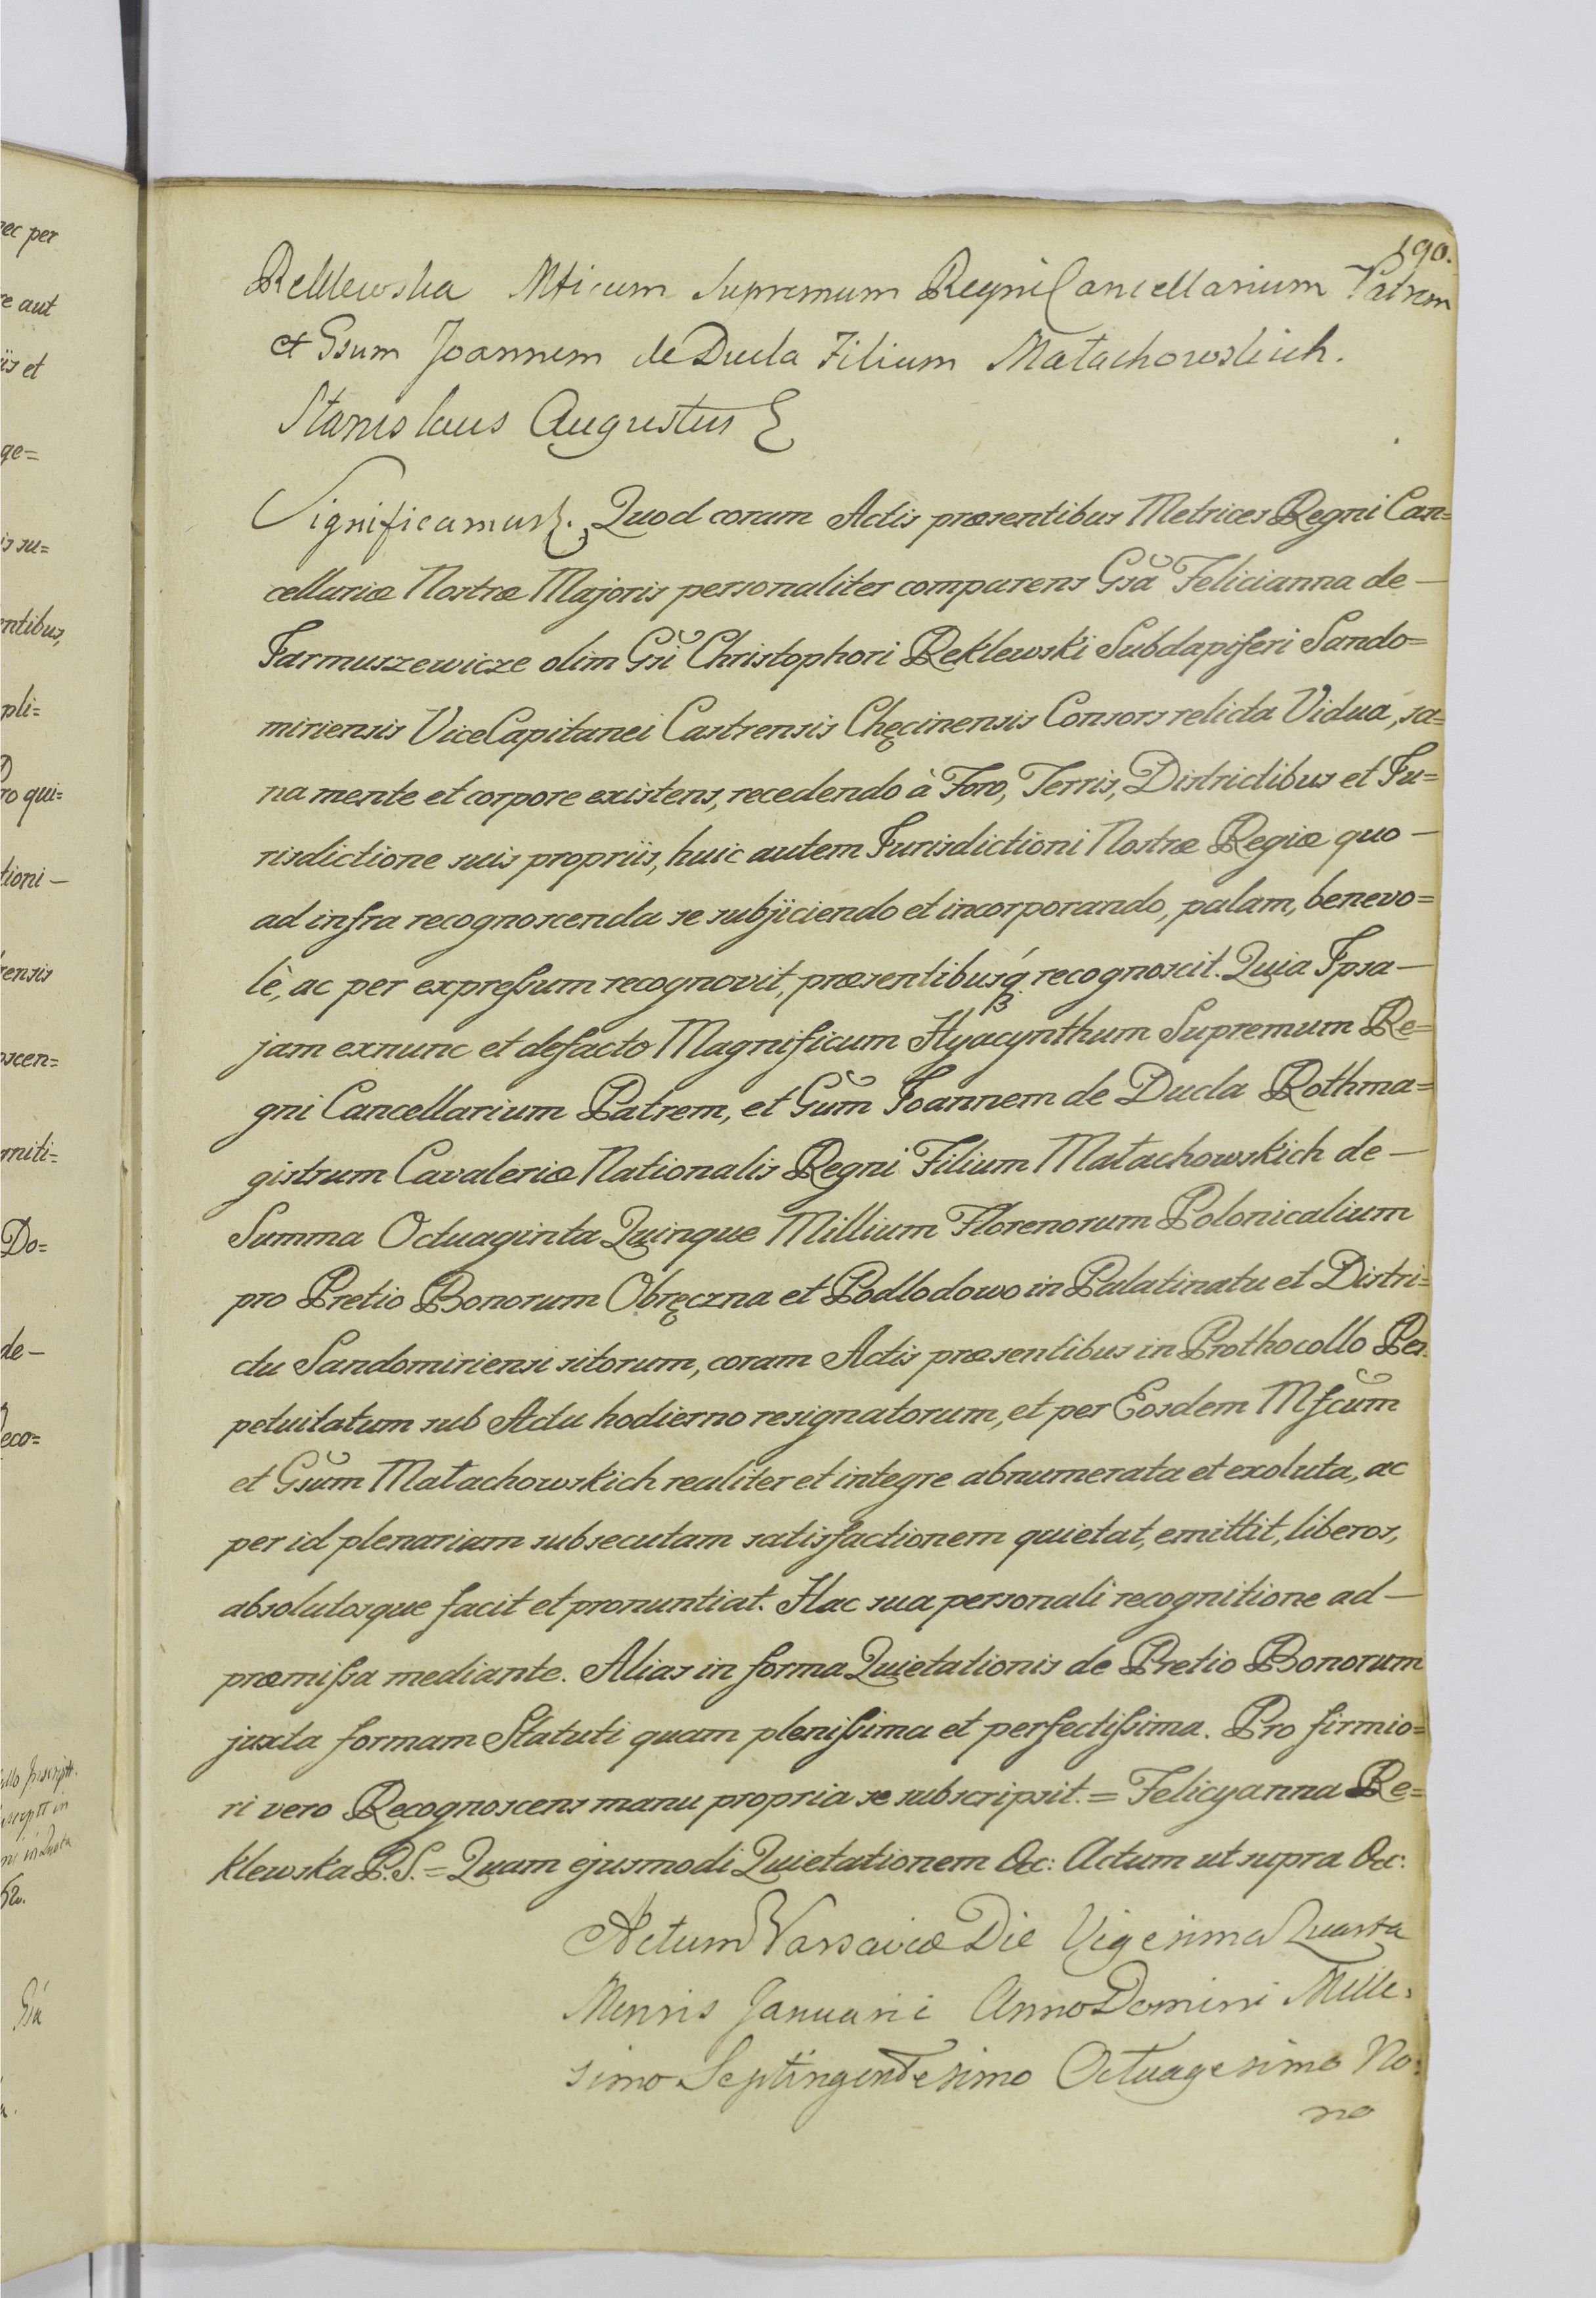 190.
Reklewska Mficum Supremum Regni Cancellarium Patrem
et Gsum Joannem de Ducla Filium Małachowskich.
Stanislaus Augustus &
Significamus &. Quod coram Actis præsentibus Metrices Regni Can=
cellariæ Nostræ Majoris personaliter comparens Gsa Felicianna de —
Jarmuszewicze olim Gsi Christophori Reklewski Subdapiferi Sando=
miriensis ViceCapitanei Castrensis Chęcinensis Consors relicta Vidua, sa=
na mente et corpore existens, recedendo à Foro, Terris, Districtibus et Ju=
risdictione suis propriis, huic autem Jurisdictioni Nostræ Regiæ quo —
ad infra recognoscenda se subjiciendo et incorporando, palam, benevo=
lè, ac per expreßum recognovit, præsentibusq recognoscit. Quia Ipsa —
jam exnunc et defacto Magnificum Hyacynthum Supremum Re=
gni Cancellarium Patrem, et Gsum Joannem de Ducla Rothma=
gistrum Cavaleriæ Nationalis Regni Filium Małachowskich de —
Summa Octuaginta Quinque Millium Florenorum Polonicalium
pro Pretio Bonorum Obręczna et Podlodowo in Palatinatu et Distri=
ctu Sandomiriensi sitorum, coram Actis præsentibus in Prothocollo Per=
petuitatum sub Actu hodierno resignatorum, et per Eosdem Mfcum
et Gsum Małachowskich realiter et integre abnumerata et exoluta, ac
per id plenariam subsecutam satisfactionem quietat, emittit, liberos,
absolutosque facit et pronuntiat. Hac sua personali recognitione ad —
præmißa mediante. Alias in forma Quietationis de Pretio Bonorum
juxta formam Statuti quam pleníßima et perfectißima. Pro firmio=
ri vero Recognoscens manu propria se subscripsit. = Felicyanna Re=
klewska P.S. = Quam ejusmodi Quietationem &c: Actum ut supra &c:
Actum Varsaviæ Die Vigesima Quarta
Mensis Januarii Anno Domini Mille=
simo Septingentesimo Octuagesimo No=
no